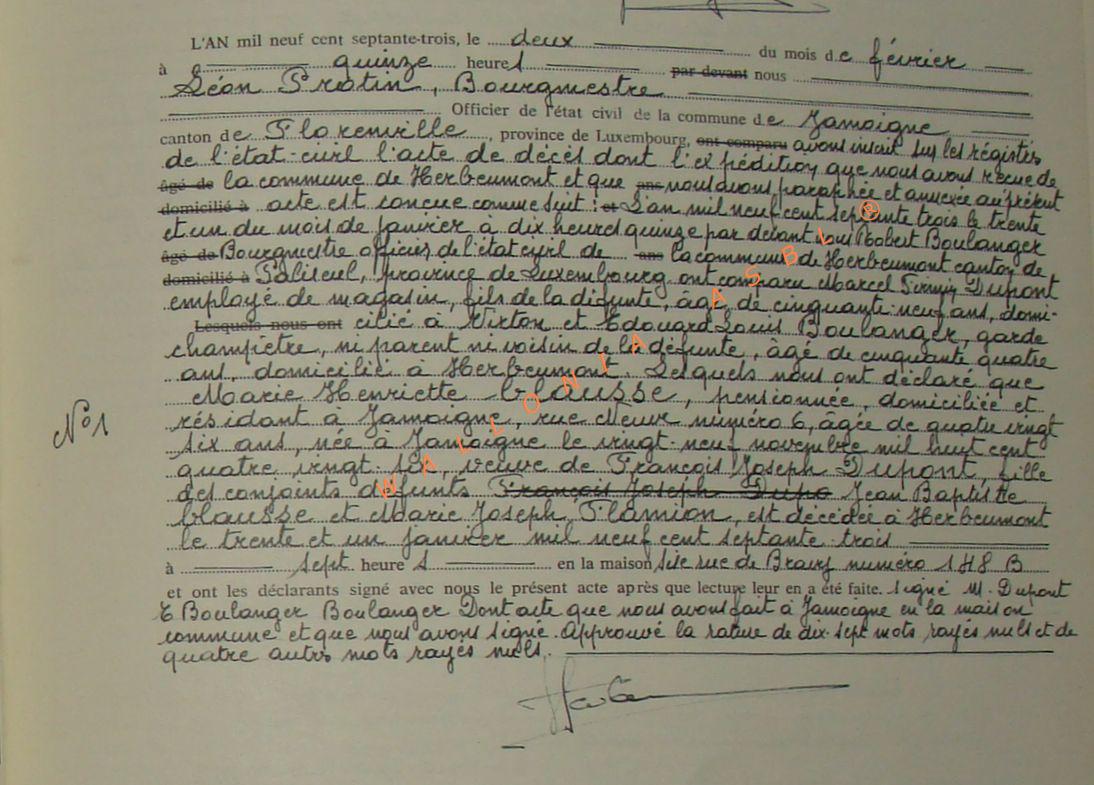 L'AN mil neuf cent septante-trois, le deux du mois de février
à quinze heures par devant nous
Léon Pratin, Bourgmestre
Officier de l'état civil de la commune de Jamoigne
canton de Florenville, province de Luxembourg, ont comparu avons inscrit sur les régistres
de l'état-civil l'acte de décès dont l'expédition que nous avons reçue de
âgé de la commune de Herbeumont et que ans nous avons paraphée et annexée au présent
domicilié à acte est conçue comme suit : et L'an mil neuf cent septente trois le trente
et un du mois de janvier à dix heures quinze par devant nous Robert Boulanger
âgé de Bourgmestre officier de l'état civil de ans la commune de Herbeumont canton de
domicilié à Paliseul, province de Luxembourg ont comparu Marcel Firmin Dupont
employé de magasin, fils de la défunte, âgé de cinquante-neuf ans, domi-
Lesquels nous ont cilié à Virton et Edouard Louis Boulanger, garde
champêtre, ni parent ni voisin de la défunte, âgé de cinquante quatre
ans, domicilié à Herbeumont. Lesquels nous ont déclaré que
Marie Henriette Clausse, pensionnée, domiciliée et
résidant à Jamoigne, rue Neuve numéro 6, âgée de quatre vingt
six ans, née à Jamoigne le vingt-neuf novembre mil huit cent
N°1
quatre vingt six, veuve de François Joseph Dupont, fille
des conjoints défunts François Joseph Dupo Jean Baptiste
Clausse et Marie Joseph Flamion, est décédée à Herbeumont
le trente et un janvier mil neuf cent septante trois
à sept heures en la maison sise rue de Bravy numéro 148 B
et ont les déclarants signé avec nous le présent acte après que lecture leur en a été faite. signé M. Dupont
E Boulanger Boulanger Dont acte que nous avons fait à Jamoigne en la maison
commune et que nous avons signé. Approuvé la rature de dix-sept mots rayés nuls et de
quatre autres mots rayés nuls.
WALLONIA ASBL ®